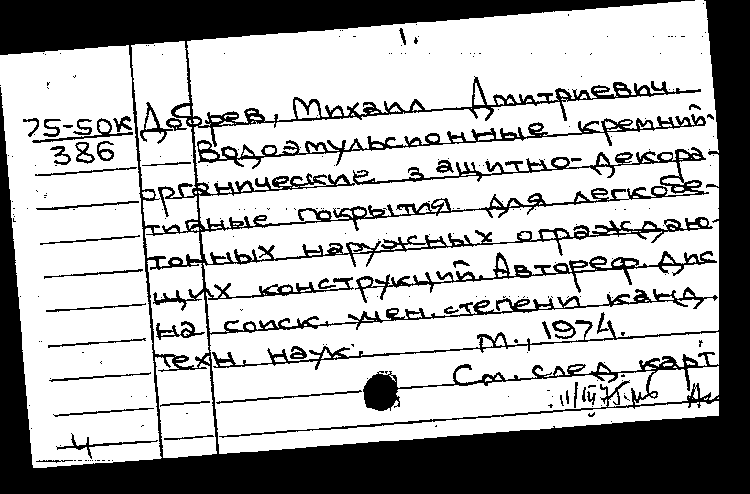 1.
75-50К Добрев, Михаил Дмитриевич.
386 Водоэмульсионные кремний-
органические защитно-декора-
тивные покрытия для легкобе-
тонных наружных ограждаю-
щих конструкций. Автореф. дис
на соиск. учен. степени канд.
техн. наук. М., 1974.
См. след. карт
4